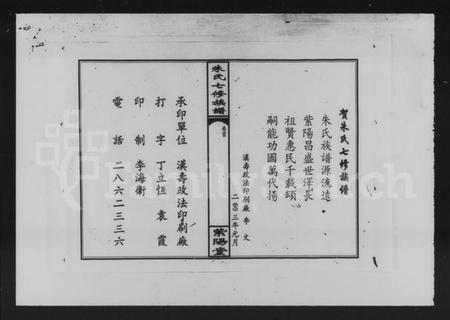 賀朱氏七修族譜
朱氏族譜源流遠
紫陽昌盛世澤長
祖賢惠民千載頌
嗣能功國萬代揚
漢壽政法印刷廠李文
二〇〇三年元月
朱氏七修族譜
卷首
紫陽堂
承印單位 漢壽政法印刷廠
打字 丁立恆 袁霞
印制 李海衛
電話 二八六二三三六
FamilySearch